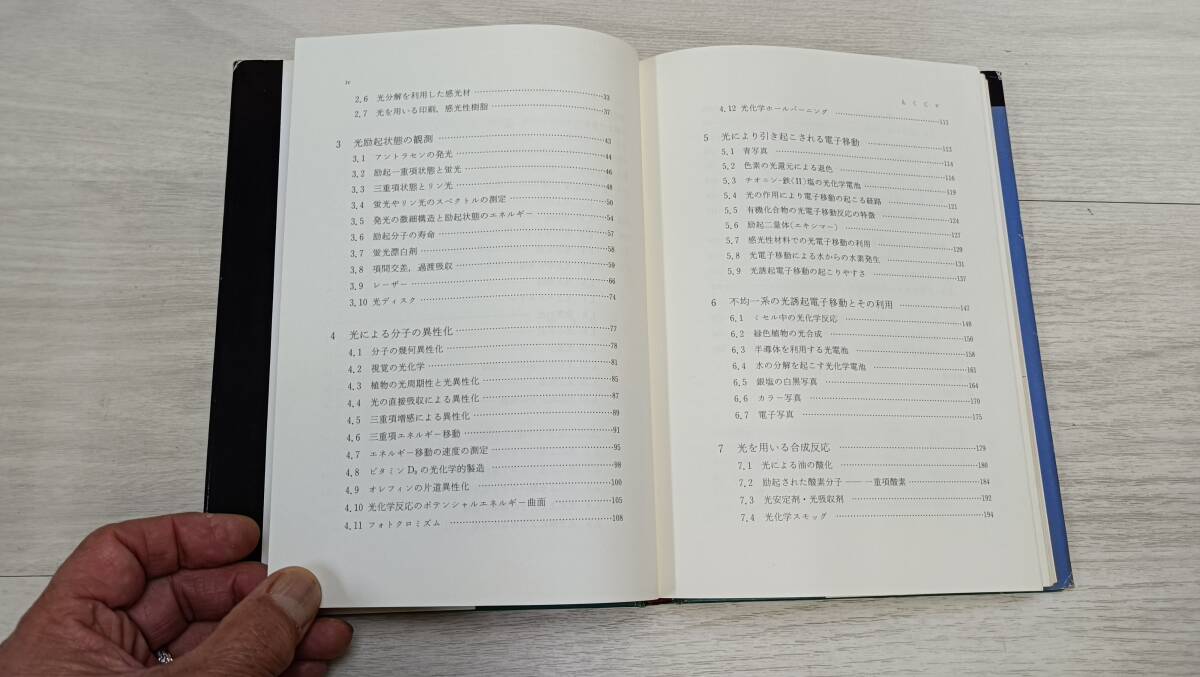 iv
2.6 光分解を利用した感光材……33
2.7 光を用いる印刷，感光性樹脂……37
3 光励起状態の観測……43
3.1 アントラセンの発光……44
3.2 励起一重項状態と蛍光……46
3.3 三重項状態とリン光……48
3.4 蛍光やリン光のスペクトルの測定……50
3.5 発光の微細構造と励起状態のエネルギー……54
3.6 励起分子の寿命……57
3.7 蛍光漂白剤……58
3.8 項間交差，過渡吸収……59
3.9 レーザー……66
3.10 光ディスク……74
4 光による分子の異性化……77
4.1 分子の幾何異性化……78
4.2 視覚の光化学……81
4.3 植物の光周期性と光異性化……85
4.4 光の直接吸収による異性化……87
4.5 三重項増感による異性化……89
4.6 三重項エネルギー移動……91
4.7 エネルギー移動の速度の測定……95
4.8 ビタミンD₃の光化学的製造……98
4.9 オレフィンの片道異性化……100
4.10 光化学反応のポテンシャルエネルギー曲面……105
4.11 フォトクロミズム……108
もくじ v
4.12 光化学ホールバーニング……111
5 光により引き起こされる電子移動……113
5.1 青写真……114
5.2 色素の光還元による退色……116
5.3 チオニン-鉄(II)塩の光化学電池……119
5.4 光の作用により電子移動の起こる経路……121
5.5 有機化合物の光電子移動反応の特徴……124
5.6 励起二量体(エキシマー)……127
5.7 感光性材料での光電子移動の利用……129
5.8 光電子移動による水からの水素発生……131
5.9 光誘起電子移動の起こりやすさ……137
6 不均一系の光誘起電子移動とその利用……147
6.1 ミセル中の光化学反応……148
6.2 緑色植物の光合成……150
6.3 半導体を利用する光電池……158
6.4 水の分解を起こす光化学電池……161
6.5 銀塩の白黒写真……164
6.6 カラー写真……170
6.7 電子写真……175
7 光を用いる合成反応……179
7.1 光による油の酸化……180
7.2 励起された酸素分子——一重項酸素……184
7.3 光安定剤・光吸収剤……192
7.4 光化学スモッグ……194